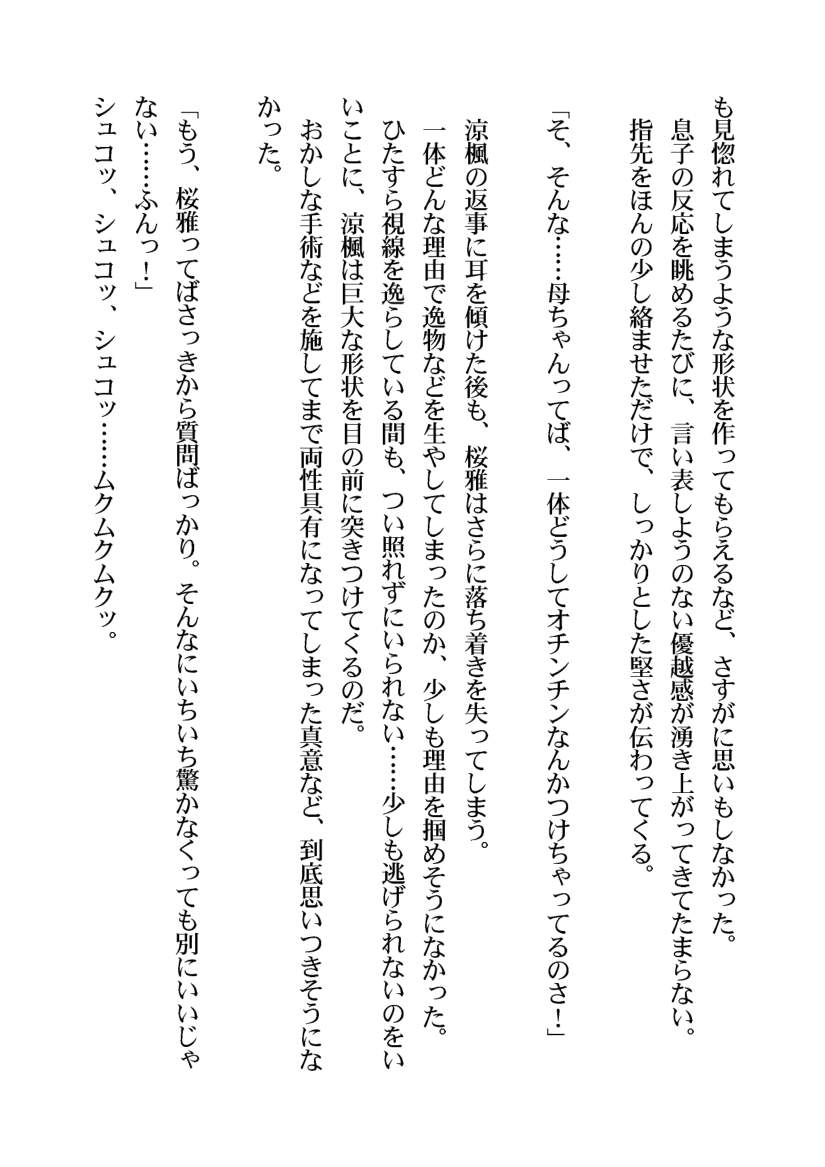 も見惚れてしまうような形状を作ってもらえるなど、さすがに思いもしなかった。
息子の反応を眺めるたびに、言い表しようのない優越感が湧き上がってきてたまらない。
指先をほんの少し絡ませただけで、しっかりとした堅さが伝わってくる。
「そ、そんな……母ちゃんってば、一体どうしてオチンチンなんかつけちゃってるのさ！」
涼楓の返事に耳を傾けた後も、桜雅はさらに落ち着きを失ってしまう。
一体どんな理由で逸物などを生やしてしまったのか、少しも理由を掴めそうになかった。
ひたすら視線を逸らしている間も、つい照れずにいられない……少しも逃げられないのをい
いことに、涼楓は巨大な形状を目の前に突きつけてくるのだ。
おかしな手術などを施してまで両性具有になってしまった真意など、到底思いつきそうにな
かった。
「もう、桜雅ってばさっきから質問ばっかり。そんなにいちいち驚かなくっても別にいいじゃ
ない……ふんっ！」
シュコッ、シュコッ、シュコッ……ムクムクムクッ。